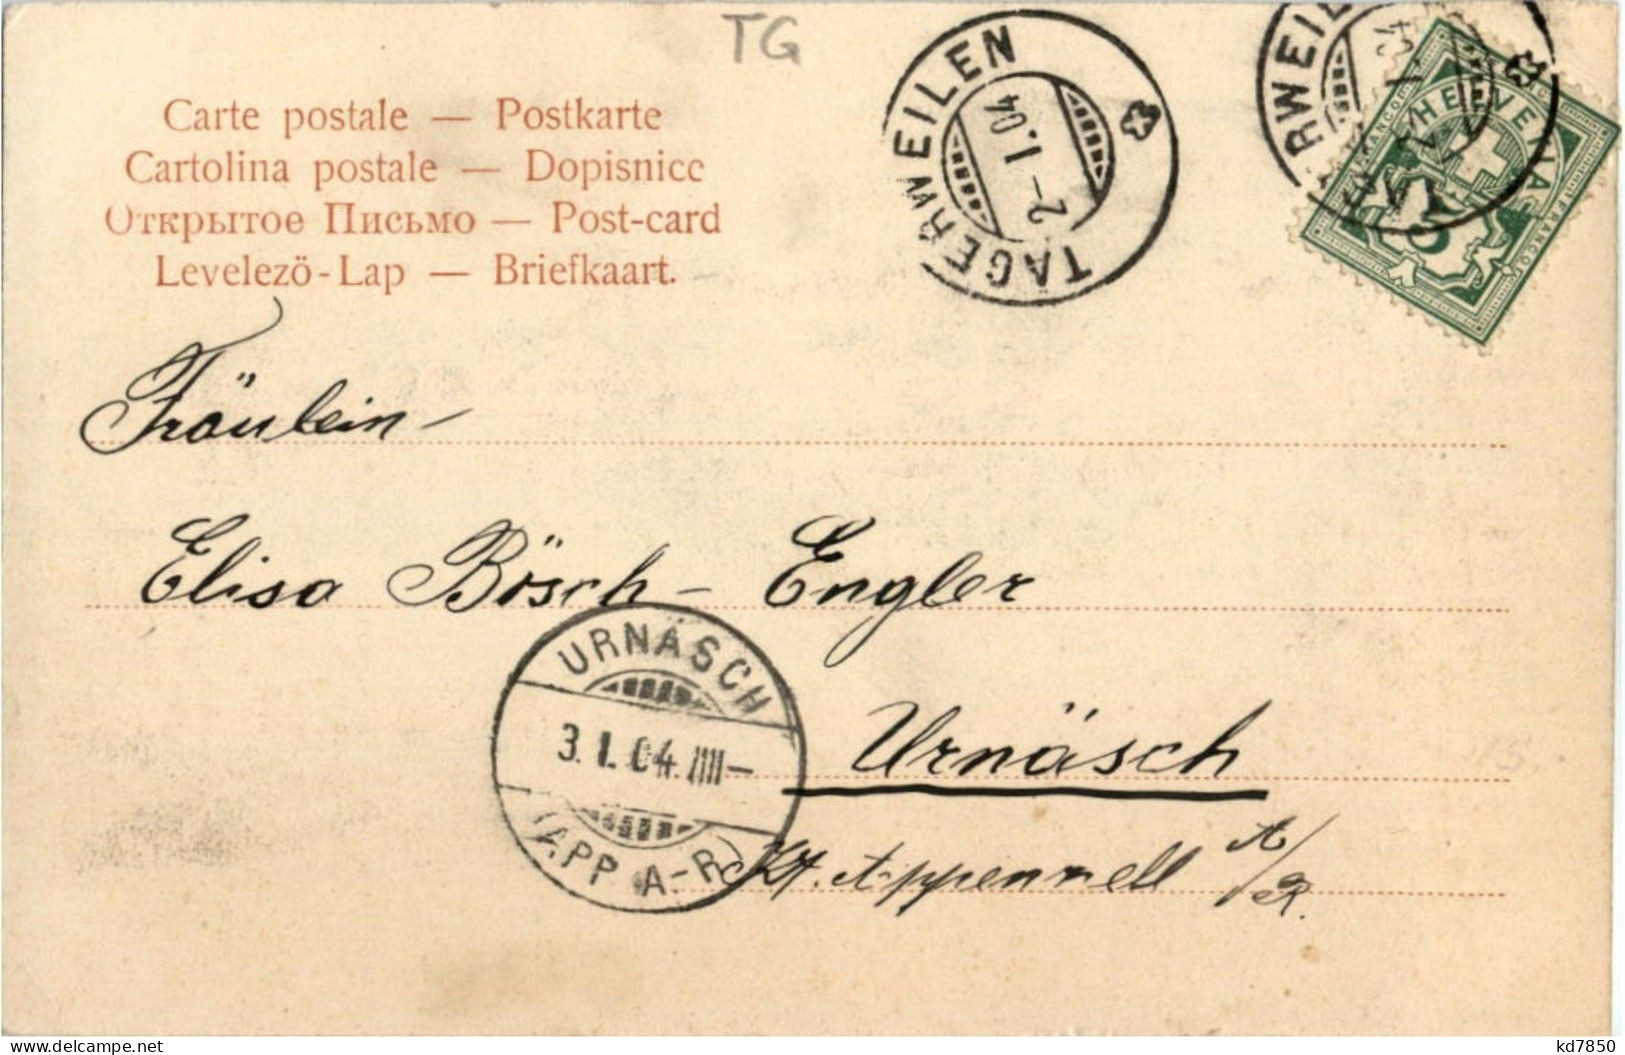 TG
Carte postale — Postkarte
Cartolina postale — Dopisnice
Открытое Письмо — Post-card
Levelezö-Lap — Briefkaart.
TÄGERWEILEN
2-1.04
RWEIL
HELVETIA
FRANCO
5
Fräulein
Elisa Bösch - Engler
URNÄSCH
3.1.04.
(APP A-R)
Urnäsch
Kt. Appenzell A/R.
15.
delcampe.net
kd7850